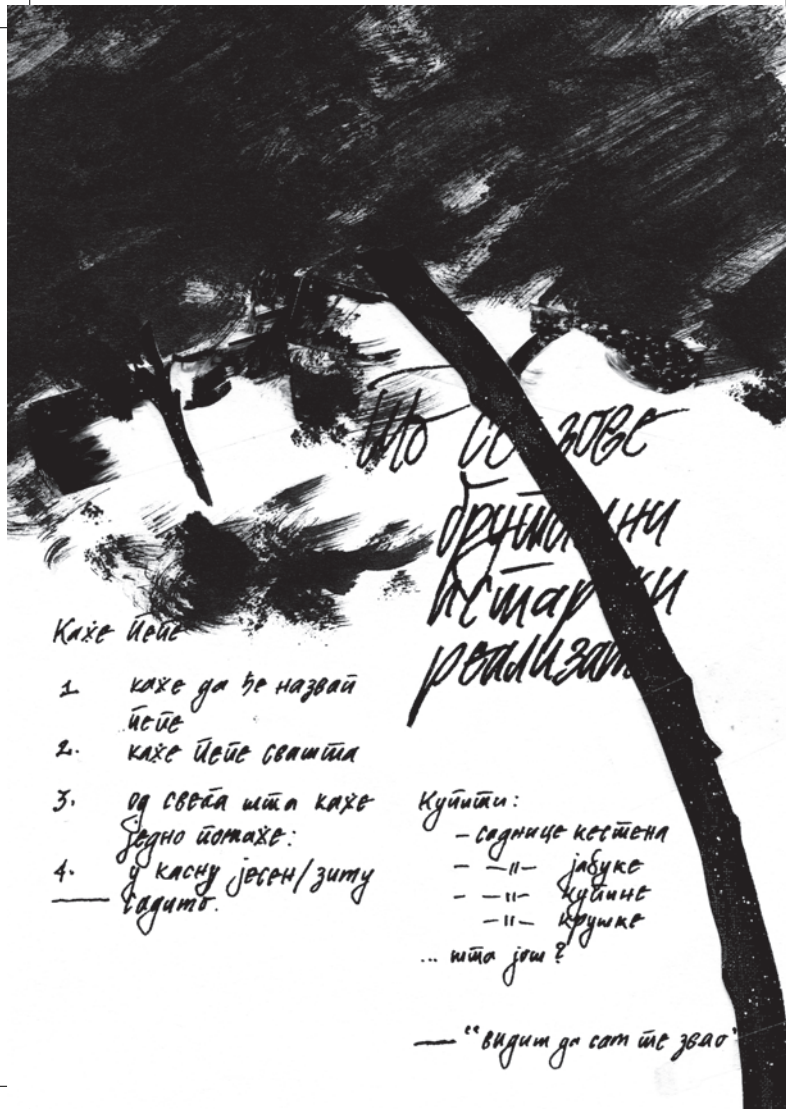 Што се зове
брутални
истарски
реализам
Каже пепе
1. каже да ће назват
пепе
2. каже пепе свашта
3. од свега шта каже
једно помаже:
4. у касну јесен/зиму
садимо.
Купити:
– саднице кестена
– –||– јабуке
– –||– купине
–||– крушке
... шта још?
— "видиш да сам те звао"